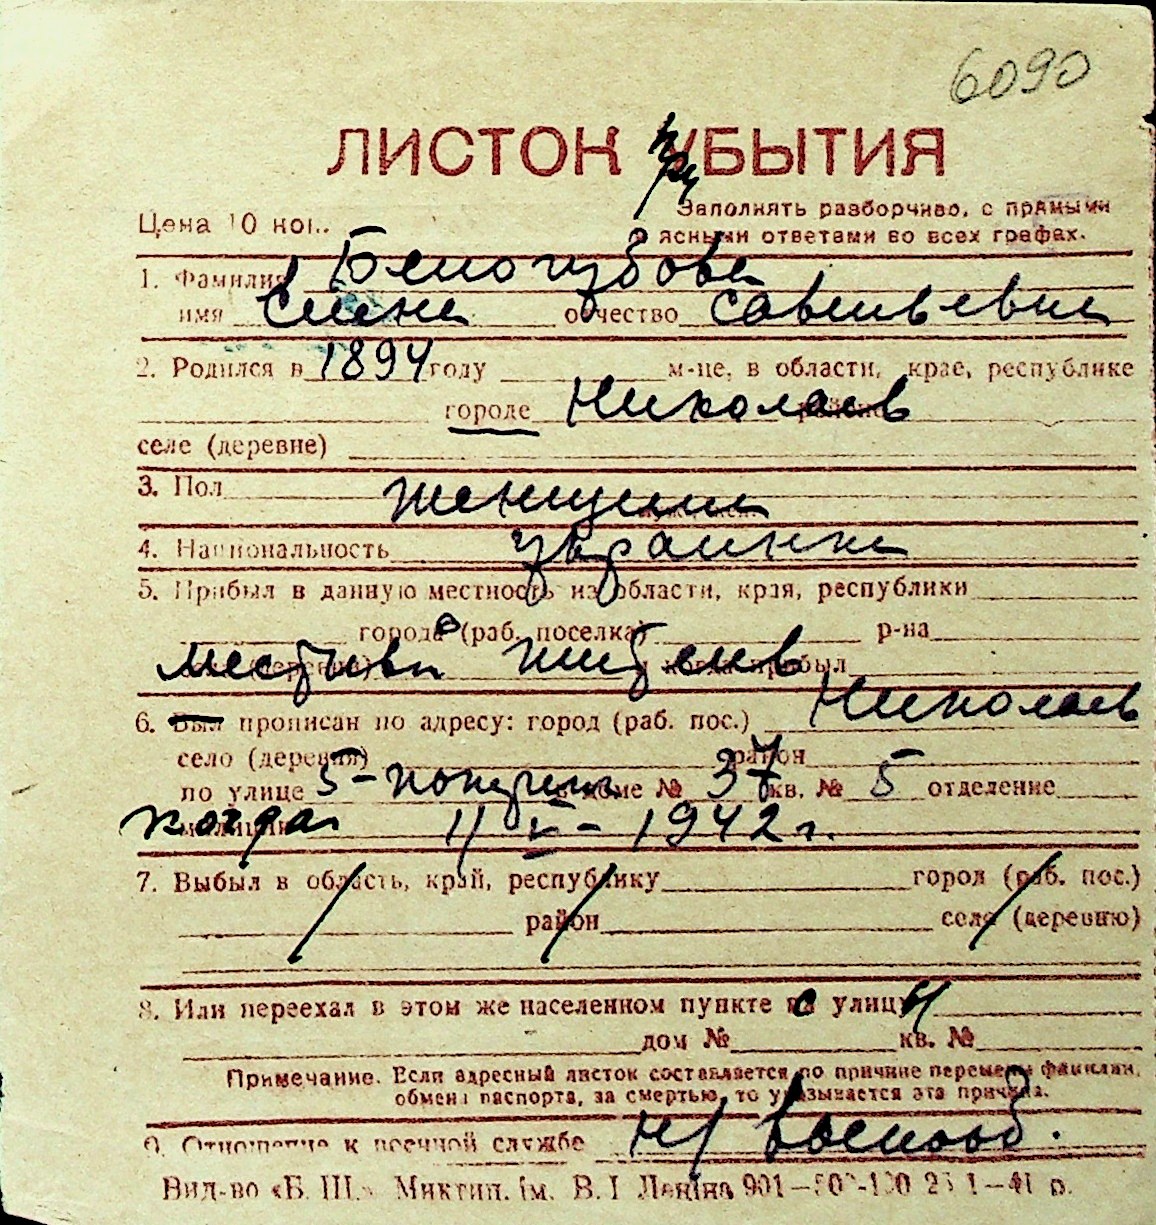 6090
ЛИСТОК УБЫТИЯ
при
Цена 10 коп. Заполнять разборчиво, с прямыми
и ясными ответами во всех графах.
1. Фамилия Белогубова
имя Елена отчество Савельевна
2. Родился в 1894 году м-це, в области, крае, республике
городе Николаев районе
селе (деревне)
3. Пол женщина
4. Национальность украинка
5. Прибыл в данную местность из области, края, республики
города (раб. поселка) р-на
села (деревни) и когда прибыл
местный житель
6. Был прописан по адресу: город (раб. пос.) Николаев
село (деревня) район
по улице 5-поперечн в доме № 37 кв. № 5 отделение
милиции когда 11 V - 1942 г.
7. Выбыл в область, край, республику город (раб. пос.)
район село (деревню)
8. Или переехал в этом же населенном пункте с улицы
дом № кв. №
Примечание. Если адресный листок составляется по причине перемены фамилии,
обмена паспорта, за смертью, то указывается эта причина.
9. Отношение к военной службе н/военнооб.
Вид-во «Б. Ш.» Миктип. ім. В. І Леніна 901—50